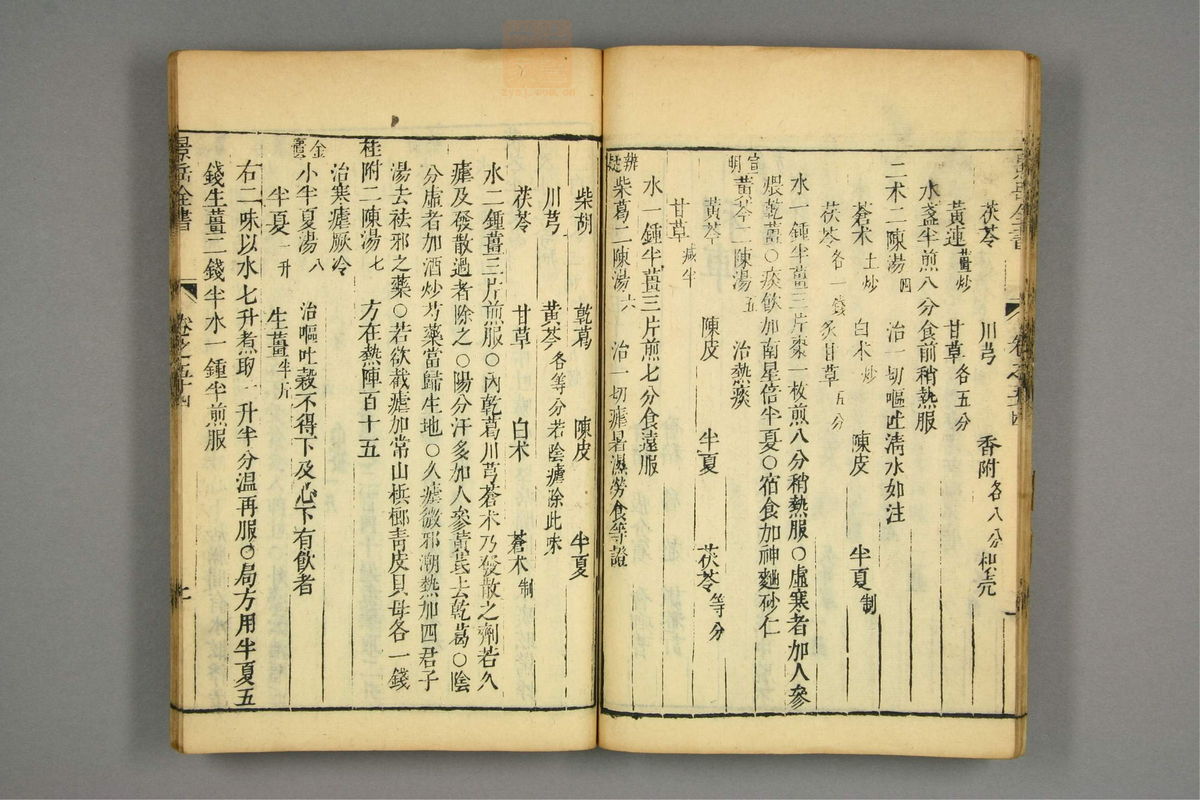 茯苓 川芎 香附各八分枳壳
黃連薑炒 甘草各五分
水盞半煎八分食前稍熱服
二术二陳湯四 治一切嘔吐清水如注
蒼术土炒 白术炒 陳皮 半夏制
茯苓各一錢 炙甘草五分
水一鍾半薑三片棗一枚煎八分稍熱服○虛寒者加人參
煨乾薑○痰飲加南星倍半夏○宿食加神麯砂仁
宣明黃芩二陳湯五 治熱痰
黃芩 陳皮 半夏 茯苓等分
甘草減半
水一鍾半薑三片煎七分食遠服
辨疑柴葛二陳湯六 治一切瘧暑濕勞食等證
柴胡 乾葛 陳皮 半夏
川芎 黃芩各等分若陰瘧除此味
茯苓 甘草 白术 蒼术制
水二鍾薑三片煎服○內乾葛川芎蒼术乃發散之劑若久
瘧及發散過者除之○陽分汗多加人參黃芪去乾葛○陰
分虛者加酒炒芍藥當歸生地○久瘧微邪潮熱加四君子
湯去祛邪之藥○若欲截瘧加常山檳榔青皮貝母各一錢
桂附二陳湯七 方在熱陣百十五
治寒瘧厥冷
金匱小半夏湯八 治嘔吐穀不得下及心下有飲者
半夏一升 生薑半斤
右二味以水七升煮取一升半分溫再服○局方用半夏五
錢生薑二錢半水一鍾半煎服
景岳全書 卷之五十四